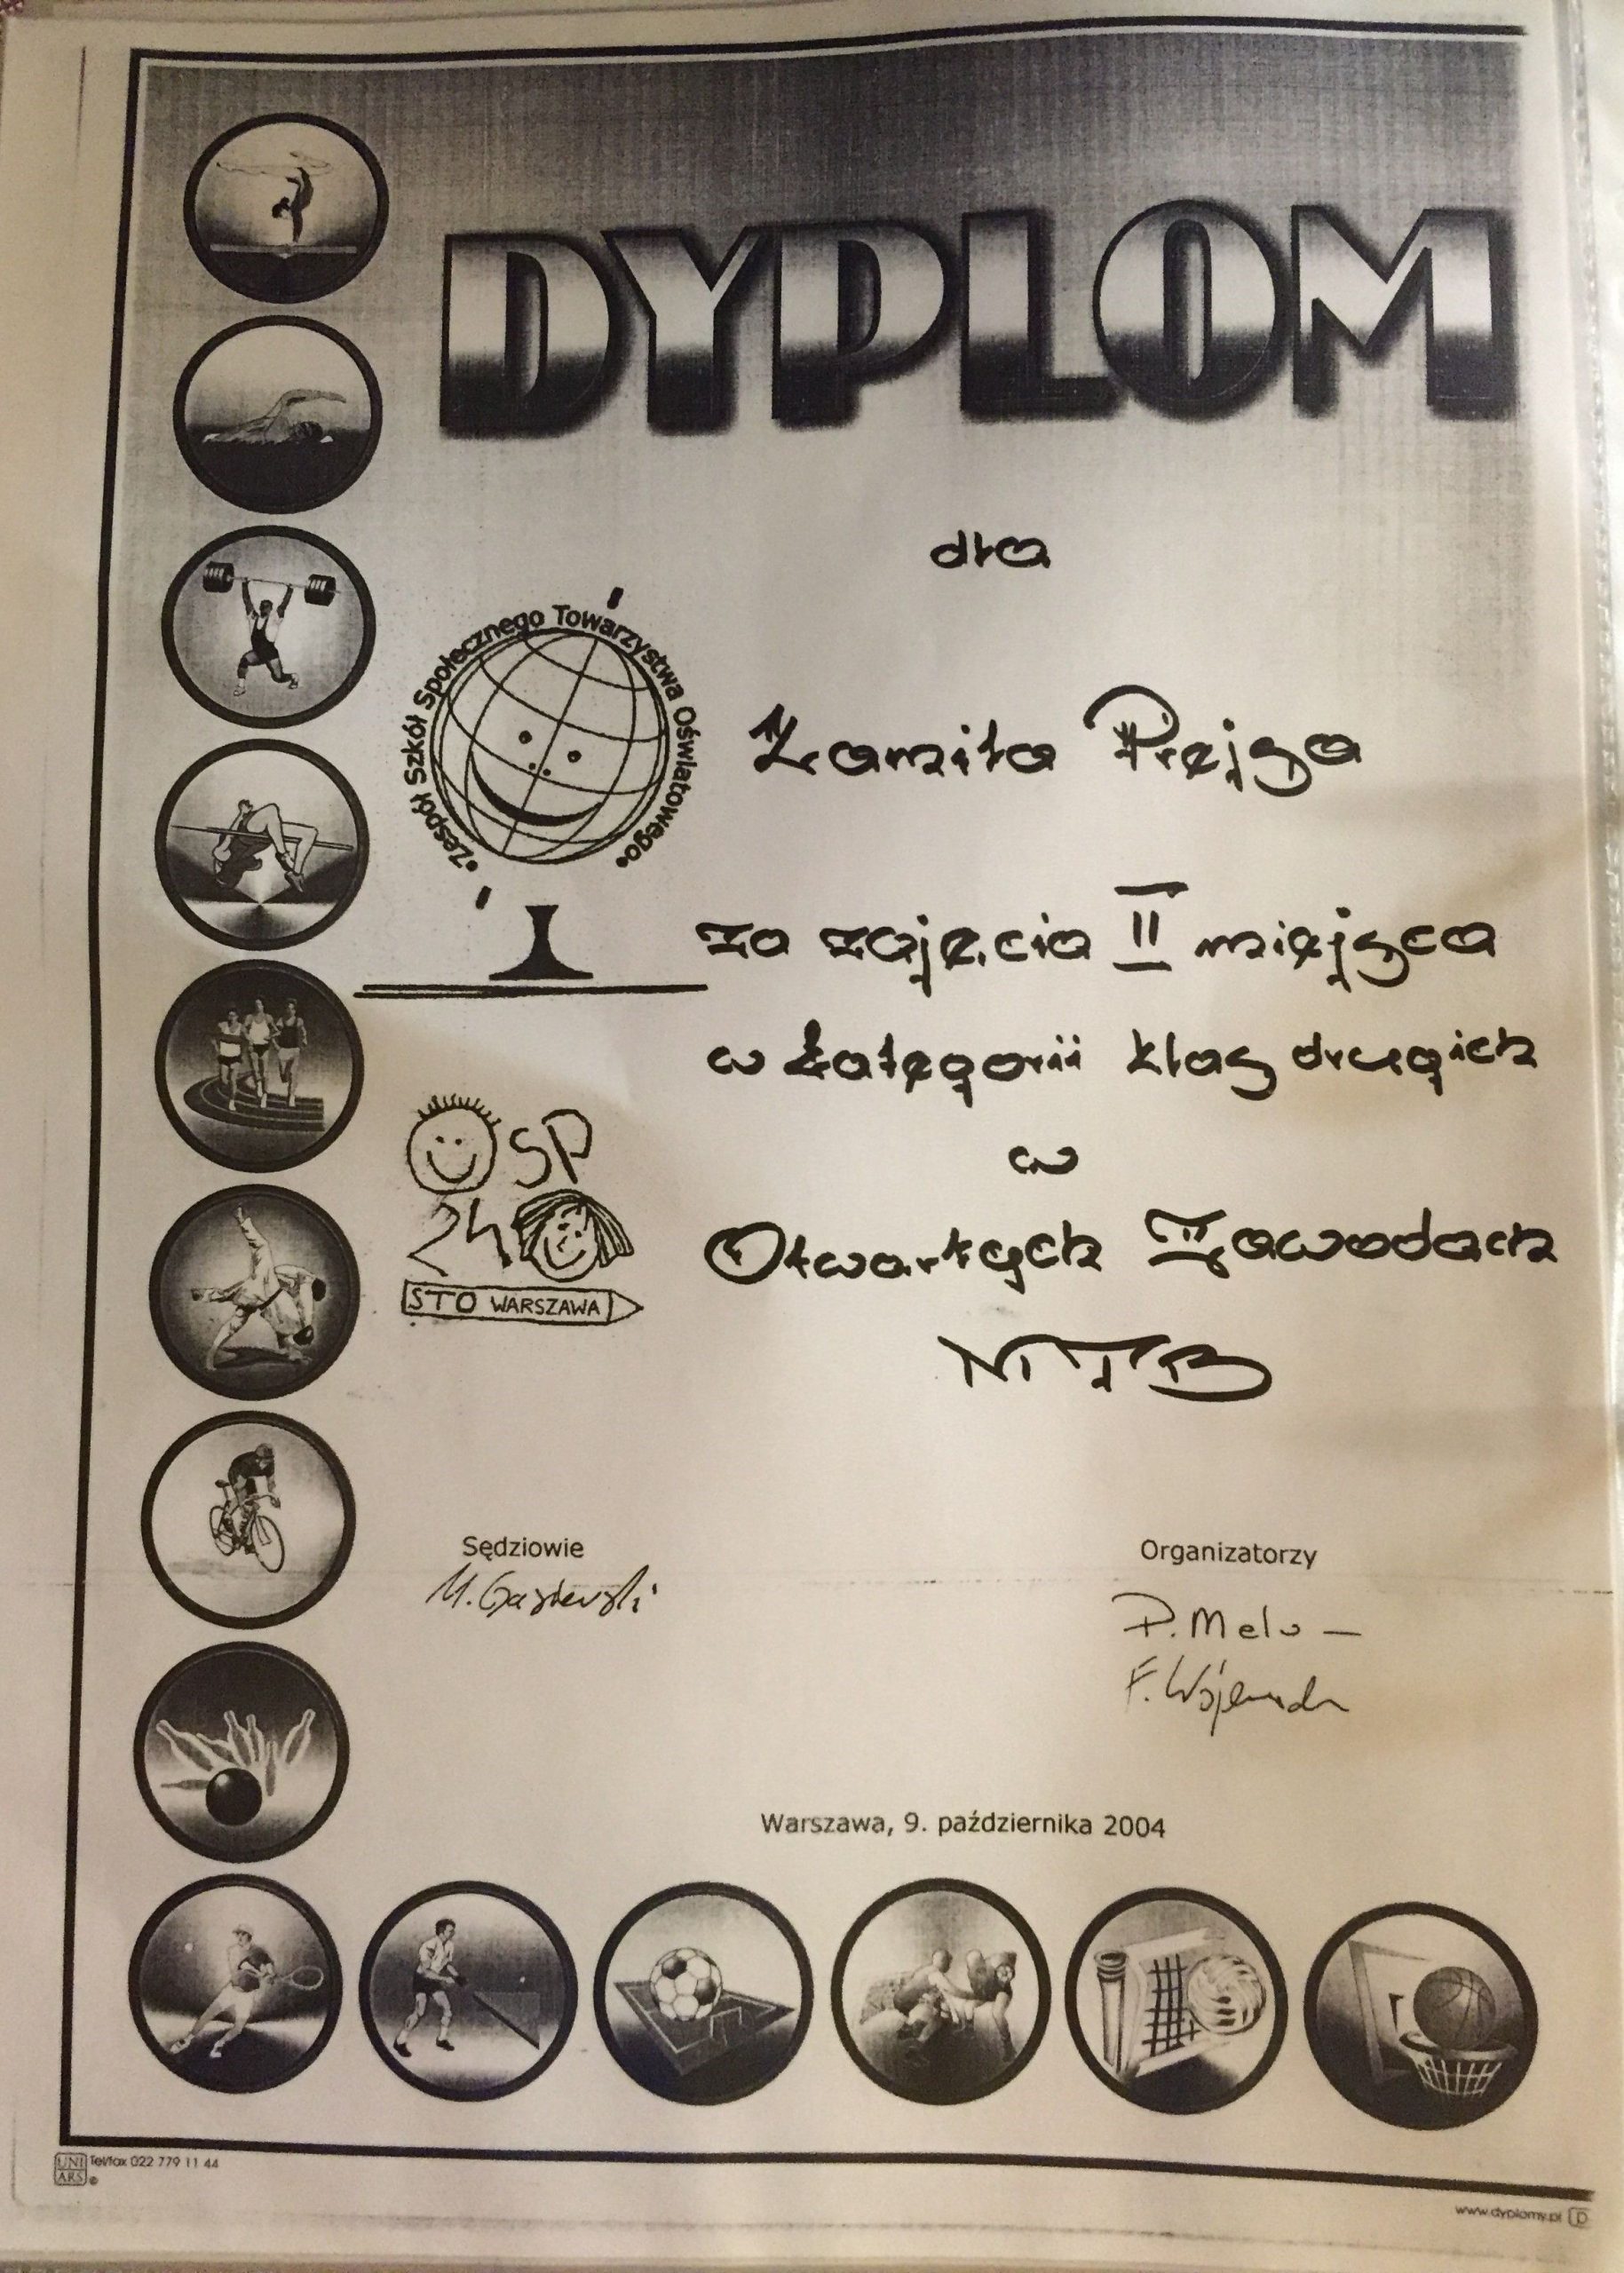 DYPLOM
dla
•Zespół Szkół Społecznego Towarzystwa Oświatowego•
Kamila
za zajęcia II miejsca
w kategorii klas drugich
w
Otwartych Zawodach
MTB
SP
24
STO WARSZAWA
Sędziowie
Organizatorzy
M.
P. Mel
F.
Warszawa, 9. października 2004
UNI ARS
Tel/fax 022 779 11 44
www.dyplomy.pl D